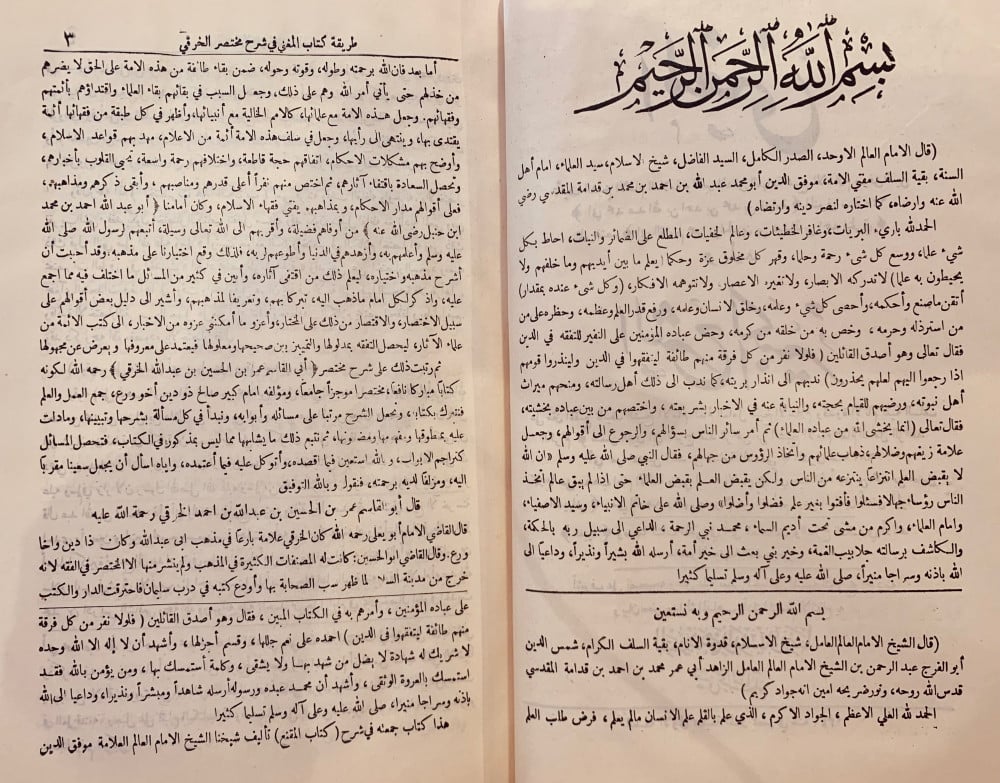 بسم الله الرحمن الرحيم
(قال الامام العالم الاوحد، الصدر الكامل، السيد الفاضل، شيخ الاسلام، سيد العلماء، امام أهل
السنة، بقية السلف مفتي الامة، موفق الدين أبو محمد عبد الله بن احمد بن محمد بن قدامة المقدسي رضي
الله عنه وارضاه، كما اختاره لنصر دينه وارتضاه)
الحمد لله بارىء البريات، وغافر الخطيئات، وعالم الخفيات، المطلع على الضمائر والنيات، احاط بكل
شيء علما، ووسع كل شيء رحمة وحلما، وقهر كل مخلوق عزة وحكما (يعلم ما بين أيديهم وما خلفهم ولا
يحيطون به علما) لا تدركه الابصار، ولا تغيره الاعصار، ولا تتوهمه الافكار، (وكل شيء عنده بمقدار)
أتقن ما صنع وأحكمه، وأحصى كل شيء وعلمه، وخلق الانسان وعلمه، ورفع قدر العلم وعظمه، وحظره على من
استرذله وحرمه، وخص به من خلقه من كرمه، وحض عباده المؤمنين على النفير للتفقه في الدين
فقال تعالى وهو أصدق القائلين (فلولا نفر من كل فرقة منهم طائفة ليتفقهوا في الدين ولينذروا قومهم
اذا رجعوا اليهم لعلهم يحذرون) ندبهم الى انذار بريته، كما ندب الى ذلك أهل رسالته، ومنحهم ميراث
أهل نبوته، ورضيهم للقيام بحجته، والنيابة عنه في الاخبار بشريعته، واختصهم من بين عباده بخشيته،
فقال تعالى (انما يخشى الله من عباده العلماء) ثم أمر سائر الناس بسؤالهم، والرجوع الى أقوالهم، وجعل
علامة زيغهم وضلالهم، ذهاب علمائهم واتخاذ الرؤوس من جهالهم، فقال النبي صلى الله عليه وسلم «ان الله
لا يقبض العلم انتزاعا ينتزعه من الناس ولكن يقبض العلم بقبض العلماء حتى اذا لم يبق عالم اتخذ
الناس رؤساء جهالا فسئلوا فأفتوا بغير علم فضلوا وأضلوا» وصلى الله على خاتم الانبياء، وسيد الاصفياء،
وامام العلماء، واكرم من مشى تحت أديم السماء، محمد نبي الرحمة، الداعي الى سبيل ربه بالحكمة،
والكاشف برسالته جلابيب الغمة، وخير نبي بعث الى خير أمة، أرسله الله بشيراً ونذيراً، وداعيا الى
الله باذنه وسراجا منيراً، صلى الله عليه وعلى آله وسلم تسليما كثيرا
بسم الله الرحمن الرحيم وبه نستعين
(قال الشيخ الامام العالم العامل، شيخ الاسلام، قدوة الانام، بقية السلف الكرام، شمس الدين
أبو الفرج عبد الرحمن بن الشيخ الامام العالم العامل الزاهد أبي عمر محمد بن احمد بن قدامة المقدسي
قدس الله روحه، ونور ضريحه امين انه جواد كريم)
الحمد لله العلي الاعظم، الجواد الاكرم، الذي علم بالقلم علم الانسان مالم يعلم، فرض طلب العلم
طريقة كتاب المغني في شرح مختصر الخرقي ٣
أما بعد فان الله برحمته وطوله، وقوته وحوله، ضمن بقاء طائفة من هذه الامة على الحق لا يضرهم
من خذلهم حتى يأتي أمر الله وهم على ذلك، وجعل السبب في بقائهم بقاء العلماء واقتداؤهم بأئمتهم
وفقهائهم. وجعل هذه الامة مع علمائها، كالامم الخالية مع أنبيائها، وأظهر في كل طبقة من فقهائها أئمة
يقتدى بها، وينتهى الى رأيها، وجعل في سلف هذه الامة أئمة من الاعلام، مهد بهم قواعد الاسلام،
وأوضح بهم مشكلات الاحكام، اتفاقهم حجة قاطعة، واختلافهم رحمة واسعة، تحيي القلوب بأخبارهم،
وتحصل السعادة باقتفاء آثارهم، ثم اختص منهم نفراً أعلى قدرهم ومناصبهم، وأبقى ذكرهم ومذاهبهم،
فعلى أقوالهم مدار الاحكام، وبمذاهبهم يفتي فقهاء الاسلام، وكان أمامنا (أبو عبد الله احمد بن محمد
ابن حنبل رضي الله عنه) من أوفاهم فضيلة، وأقربهم الى الله تعالى وسيلة، أتبعهم لرسول الله صلى الله
عليه وسلم وأعلمهم به، وأزهدهم في الدنيا وأطوعهم لربه، فلذلك وقع اختيارنا على مذهبه. وقد أحببت أن
أشرح مذهبه واختياره، ليعلم ذلك من اقتفى آثاره، وأبين في كثير من المسائل ما اختلف فيه مما اجمع
عليه، واذكر لكل امام ماذهب اليه، تبركا بهم، وتعريفا لمذاهبهم، وأشير الى دليل بعض أقوالهم على
سبيل الاختصار، والاقتصار من ذلك على المختار، وأعزو ما أمكنني عزوه من الاخبار، الى كتب الائمة من
علماء الآثار، ليحصل التفقه بمدلولها والتمييز بين صحيحها ومعلولها فيعتمد على معروفها ويعرض عن مجهولها
ثم رتبت ذلك على شرح مختصر (أبي القاسم عمر بن الحسين بن عبد الله الخرقي) رحمه الله لكونه
كتابا مباركا نافعا، ومختصرا موجزاً جامعا، ومؤلفه امام كبير صالح ذو دين أخو ورع، جمع العلم والعمل
فنتبرك بكتابه، ونجعل الشرح مرتبا على مسائله وأبوابه، ونبدأ في كل مسألة بشرحها وتبيينها، وما دلت
عليه بمنطوقها ومفهومها ومضمونها، ثم نتبع ذلك ما يشابهها مما ليس بمذكور في الكتاب، فتحصل المسائل
كتراجم الابواب، وبالله استعين فيما اقصده، وأتوكل عليه فيما أعتمده، واياه اسأل أن يجعل سعينا مقربا
اليه، ومزلفا لديه برحمته، فنقول وبالله التوفيق
قال أبو القاسم عمر بن الحسين بن عبد الله بن احمد الخرقي رحمة الله عليه
قال القاضي الامام أبو يعلى رحمه الله كان الخرقي علامة بارعا في مذهب ابي عبد الله وكان ذا دين واخا
ورع. وقال القاضي ابو الحسين: كانت له المصنفات الكثيرة في المذهب ولم ينتشر منها الا المختصر في الفقه لانه
خرج من مدينة السلام لما ظهر سب الصحابة بها وأودع كتبه في درب سليمان فاحترقت الدار والكتب
على عباده المؤمنين، وأمرهم به في الكتاب المبين، فقال وهو أصدق القائلين (فلولا نفر من كل فرقة
منهم طائفة ليتفقهوا في الدين) احمده على نعم جللها، وقسم أجزلها، وأشهد أن لا إله إلا الله وحده
لا شريك له شهادة لا يضل من شهد بها ولا يشقى، وكلمة أستمسك بها، ومن يؤمن بالله فقد
استمسك بالعروة الوثقى، وأشهد أن محمد عبده ورسوله أرسله شاهداً ومبشراً ونذيرا، وداعيا الى الله
بإذنه وسراجا منيرا، صلى الله عليه وعلى آله وسلم تسليما كثيرا
هذا كتاب جمعته في شرح (كتاب المقنع) تأليف شيخنا الشيخ الامام العالم العلامة موفق الدين